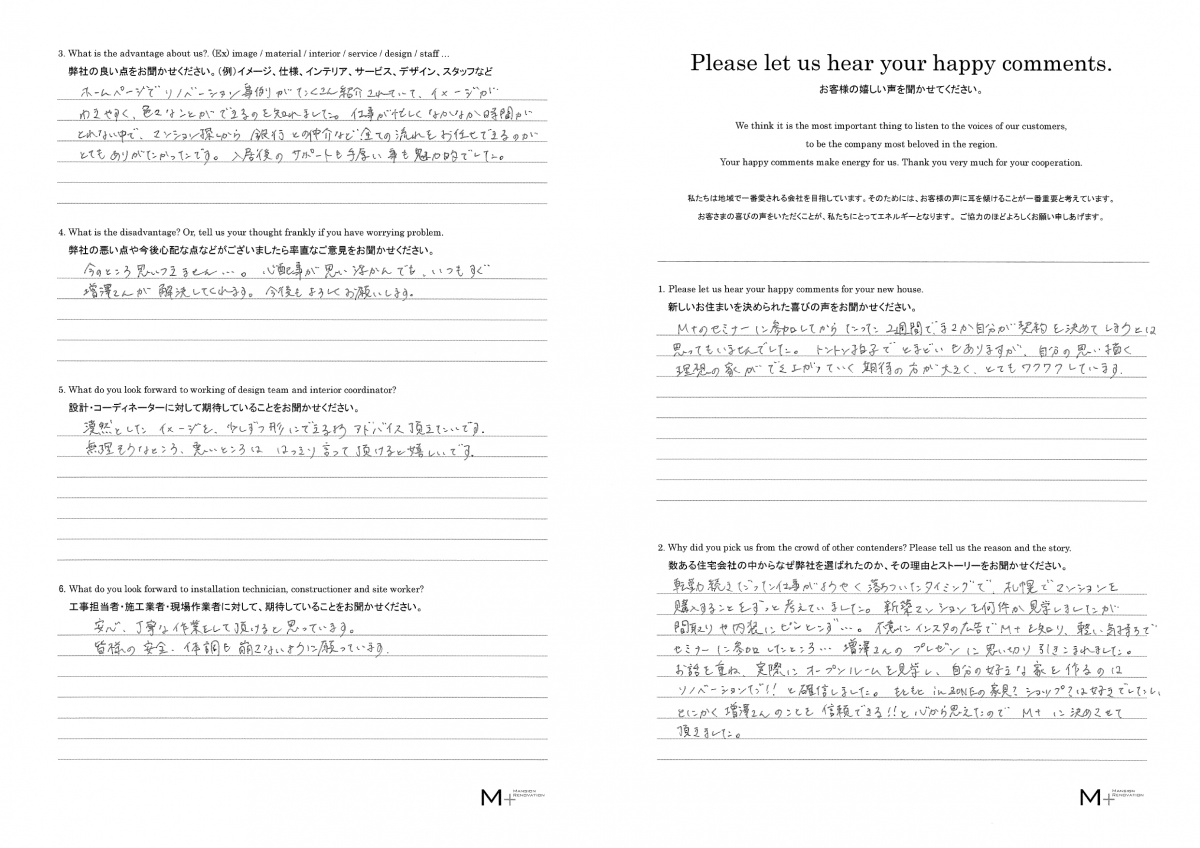 3. What is the advantage about us?. (Ex) image / material / interior / service / design / staff ...
弊社の良い点をお聞かせください。（例）イメージ、仕様、インテリア、サービス、デザイン、スタッフなど
ホームページでリノベーション事例がたくさん紹介されていて、イメージが
わきやすく、色々なことができるのを知れました。仕事が忙しくなかなか時間が
とれない中で、マンション探しから銀行との仲介など全ての流れをお任せできるのが
とてもありがたかったです。入居後のサポートも手厚い事も魅力的でした。
4. What is the disadvantage? Or, tell us your thought frankly if you have worrying problem.
弊社の悪い点や今後心配な点などがございましたら率直なご意見をお聞かせください。
今のところ思いつきません…。心配事が思い浮かんでも、いつもすぐ
増澤さんが解決してくれます。今後もよろしくお願いします。
5. What do you look forward to working of design team and interior coordinator?
設計・コーディネーターに対して期待していることをお聞かせください。
漠然としたイメージを、少しずつ形にできる様アドバイス頂きたいです。
無理そうなところ、悪いところははっきり言って頂けると嬉しいです。
6. What do you look forward to installation technician, constructioner and site worker?
工事担当者・施工業者・現場作業者に対して、期待していることをお聞かせください。
安心、丁寧な作業をして頂けると思っています。
皆様の安全、体調も崩さないように願っています。
M+ MANSION RENOVATION
Please let us hear your happy comments.
お客様の嬉しい声を聞かせてください。
We think it is the most important thing to listen to the voices of our customers,
to be the company most beloved in the region.
Your happy comments make energy for us. Thank you very much for your cooperation.
私たちは地域で一番愛される会社を目指しています。そのためには、お客様の声に耳を傾けることが一番重要と考えています。
お客さまの喜びの声をいただくことが、私たちにとってエネルギーとなります。 ご協力のほどよろしくお願い申しあげます。
1. Please let us hear your happy comments for your new house.
新しいお住まいを決められた喜びの声をお聞かせください。
M+のセミナーに参加してからたった2週間で、まさか自分が契約を決めてしまうとは
思ってもいませんでした。トントン拍子でとまどいもありますが、自分の思い描く
理想の家ができ上がっていく期待の方が大きく、とてもワクワクしています。
2. Why did you pick us from the crowd of other contenders? Please tell us the reason and the story.
数ある住宅会社の中からなぜ弊社を選ばれたのか、その理由とストーリーをお聞かせください。
転勤続きだった仕事がようやく落ちついたタイミングで、札幌でマンションを
購入することをずっと考えていました。新築マンションを何件か見学しましたが
間取りや内装にピンとこず…。不意にインスタの広告でM+を知り、軽い気持ちで
セミナーに参加したところ…増澤さんのプレゼンに思い切り引きこまれました。
お話を重ね、実際にオープンルームを見学し、自分の好きな家を作るのは
リノベーションだ!! と確信しました。そもそもinZONEの家具?ショップ?は好きでしたし、
とにかく増澤さんのことを信頼できる!!と心から思えたのでM+に決めさせて
頂きました。
M+ MANSION RENOVATION